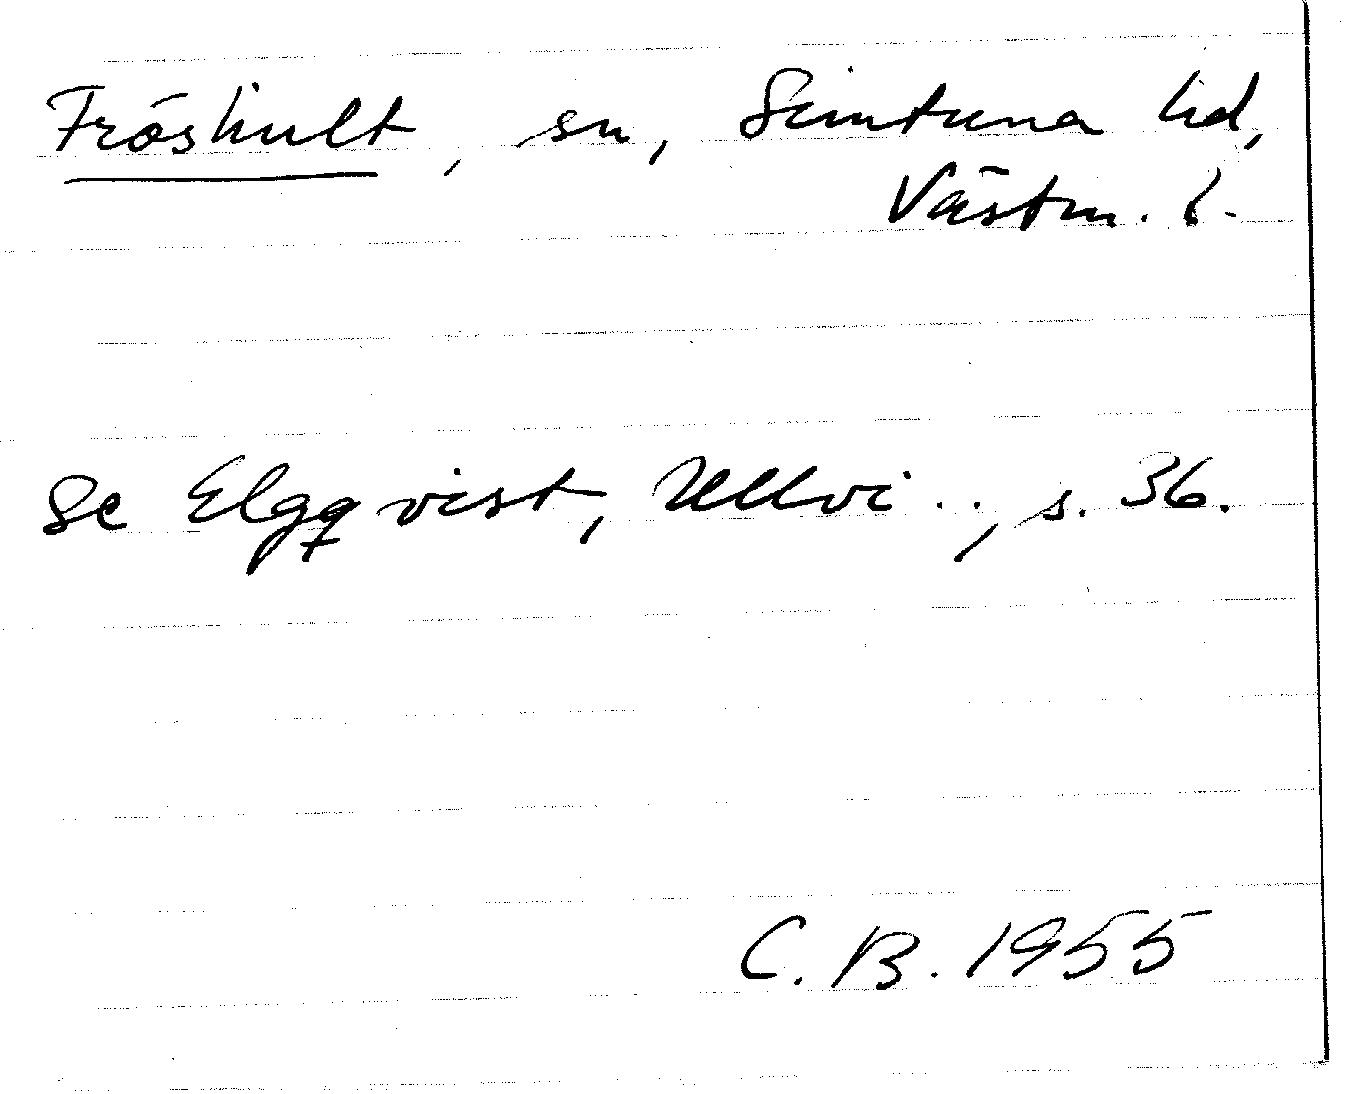 Fröshult, sn, Simtuna hd,
Västm. l.
Se Elgqvist, Ullvi.., s. 36.
C. B. 1955